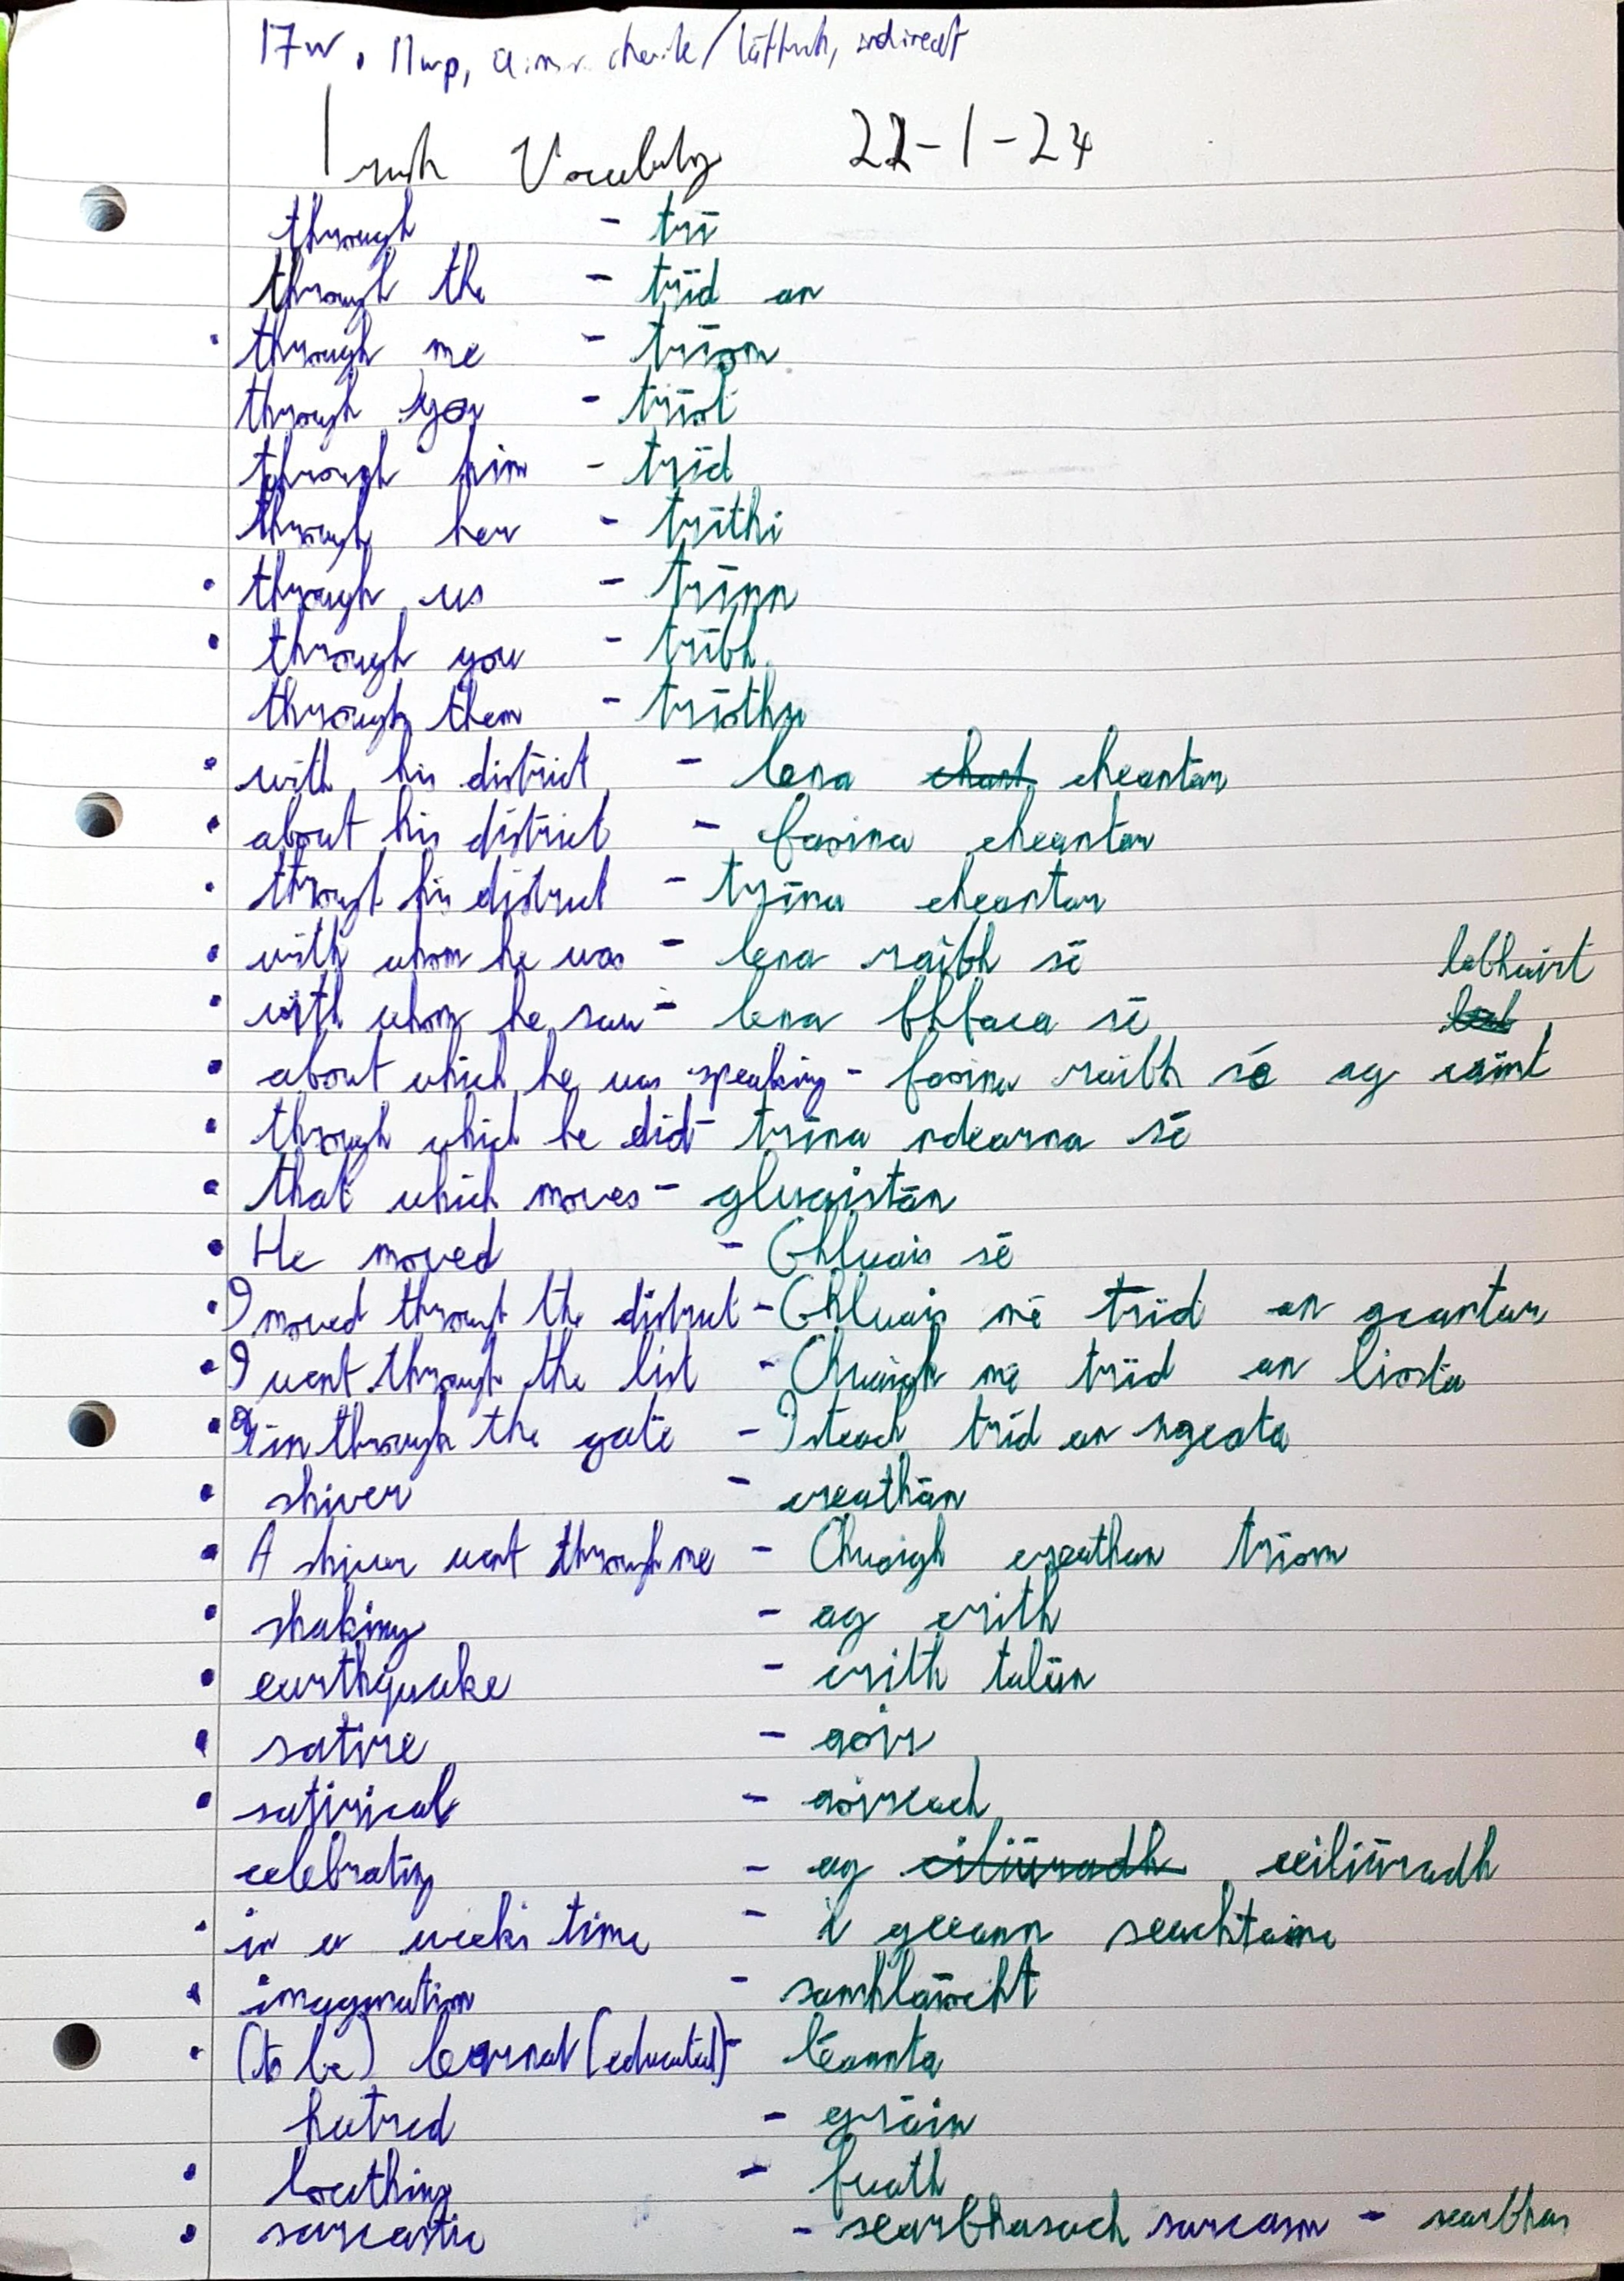 17w, 11wp, indirect
Irish Vocabulary 22-1-24
through - trí
through the - tríd an
• through me - tríom
through you - tríot
through him - tríd
through her - tríthi
• through us - trínn
• through you - tríbh
through them - tríothu
• with his district - lena cheantar
• about his district - faoina cheantar
• through his district - trína cheantar
• with whom he was - lena raibh sé
labhairt
• with whom he saw - lena bhfaca sé
• about which he was speaking - faoina raibh sé ag caint
• through which he did - trína ndearna sé
• that which moves - gluaistán
• He moved - Ghluais sé
• I moved through the district - Ghluais mé tríd an gcantar
• I went through the list - Chuaigh mé tríd an liosta
• in through the gate - Isteach tríd an ngeata
• shiver - creathán
• A shiver went through me - Chuaigh creathan tríom
• shaking - ag crith
• earthquake - crith talún
• satire - aoir
• satirical - aoireach
celebrating - ag ciliúradh ceiliúradh
• in a weeks time - i gceann seachtaine
• imagination - samhlaíocht
• (to be) learned (educated) - léannta
hatred - gráin
• loathing - fuath
• sarcastic - searbhasach sarcasm - searbhas